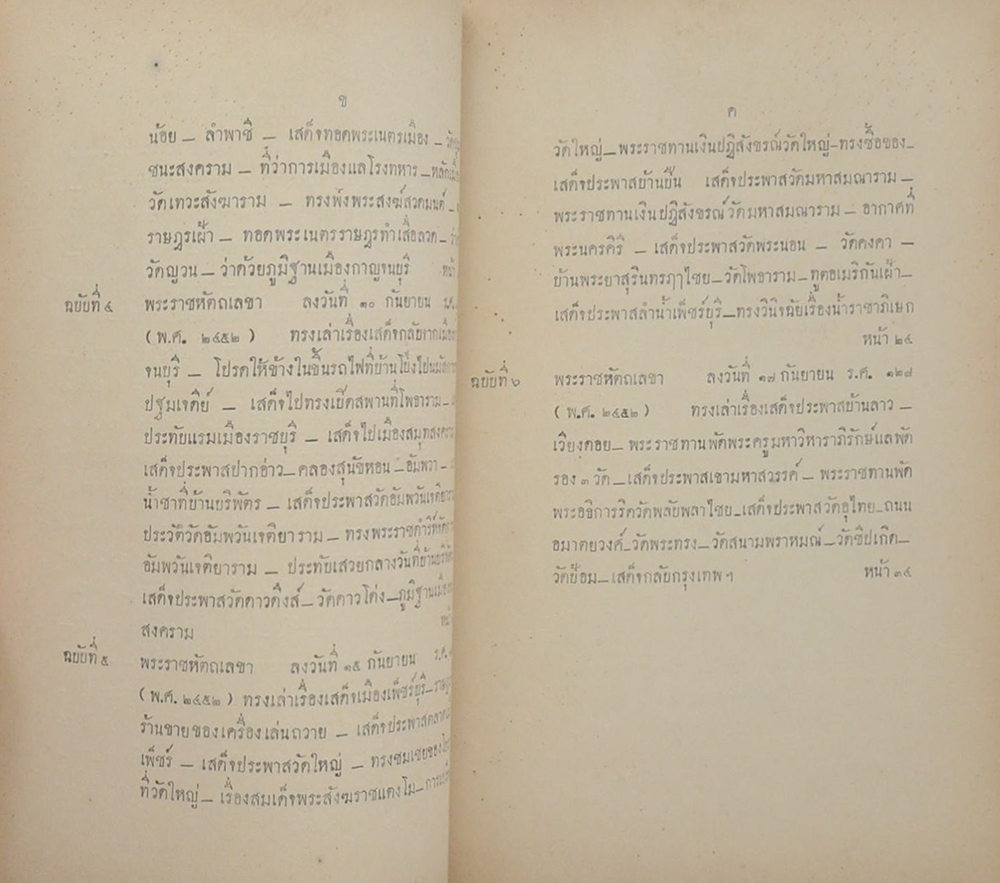 ข
น้อย — ลำพาชี — เสด็จทอดพระเนตรเมือง — วัด
ชนะสงคราม — ที่ว่าการเมืองแลโรงทหาร — หลักเมือง
วัดเทวะสังฆาราม — ทรงฟังพระสงฆ์สวดมนต์ —
ราษฎรเฝ้า — ทอดพระเนตรราษฎรทำเสื่อลวด —
วัดญวน — ว่าด้วยภูมิฐานเมืองกาญจนบุรี
ฉบับที่ ๔ พระราชหัตถเลขา ลงวันที่ ๑๐ กันยายน ร.ศ.
(พ.ศ. ๒๔๕๒) ทรงเล่าเรื่องเสด็จกลับจากเมือง
จนบุรี — โปรดให้ข้างในขึ้นรถไฟที่บ้านโป่งไปนมัสการ
ปฐมเจดีย์ — เสด็จไปทรงเปิดสพานที่โพธาราม —
ประทับแรมเมืองราชบุรี — เสด็จไปเมืองสมุทสงคราม
เสด็จประพาสปากอ่าว — คลองสุนัขหอน — อัมพวา —
น้ำชาที่บ้านบริพัตร — เสด็จประพาสวัดอัมพวันเจติยาราม
ประวัติวัดอัมพวันเจติยาราม — ทรงพระราชดำริห์
อัมพวันเจติยาราม — ประทับเสวยกลางวันที่บ้านบริพัตร
เสด็จประพาสวัดดาวดึงส์ — วัดดาวโด่ง — ภูมิฐานเมือง
สงคราม
ฉบับที่ ๕ พระราชหัตถเลขา ลงวันที่ ๑๕ กันยายน ร.ศ.
(พ.ศ. ๒๔๕๒) ทรงเล่าเรื่องเสด็จเมืองเพ็ชร์บุรี —
ร้านขายของเครื่องเล่นถวาย — เสด็จประพาสตลาด
เพ็ชร์ — เสด็จประพาสวัดใหญ่ — ทรงชมเชยของ
ที่วัดใหญ่ — เรื่องสมเด็จพระสังฆราชแตงโม —
ค
วัดใหญ่ — พระราชทานเงินปฏิสังขรณ์วัดใหญ่ — ทรงซื้อของ —
เสด็จประพาสบ้านปืน เสด็จประพาสวัดมหาสมณาราม —
พระราชทานเงินปฏิสังขรณ์วัดมหาสมณาราม — อากาศที่
พระนครคิรี — เสด็จประพาสวัดพระนอน — วัดคงคา —
บ้านพระยาสุรินทรฦๅไชย — วัดโพธาราม — ทูตอเมริกันเฝ้า —
เสด็จประพาสลำน้ำเพ็ชร์บุรี — ทรงวินิจฉัยเรื่องน้ำราชาภิเษก
หน้า ๒๔
ฉบับที่ ๖ พระราชหัตถเลขา ลงวันที่ ๑๗ กันยายน ร.ศ. ๑๒๘
(พ.ศ. ๒๔๕๒) ทรงเล่าเรื่องเสด็จประพาสบ้านลาว —
เวียงคอย — พระราชทานพัดพระครูมหาวิหาราภิรักษ์แลพัด
รอง ๓ วัด — เสด็จประพาสเขามหาสวรรค์ — พระราชทานพัด
พระอธิการริดวัดพลับพลาไชย — เสด็จประพาสวัดอุไทย — ถนน
อมาตยวงศ์ — วัดพระทรง — วัดสนามพราหมณ์ — วัดชีปเกิด —
วัดป้อม — เสด็จกลับกรุงเทพ ฯ หน้า ๓๔